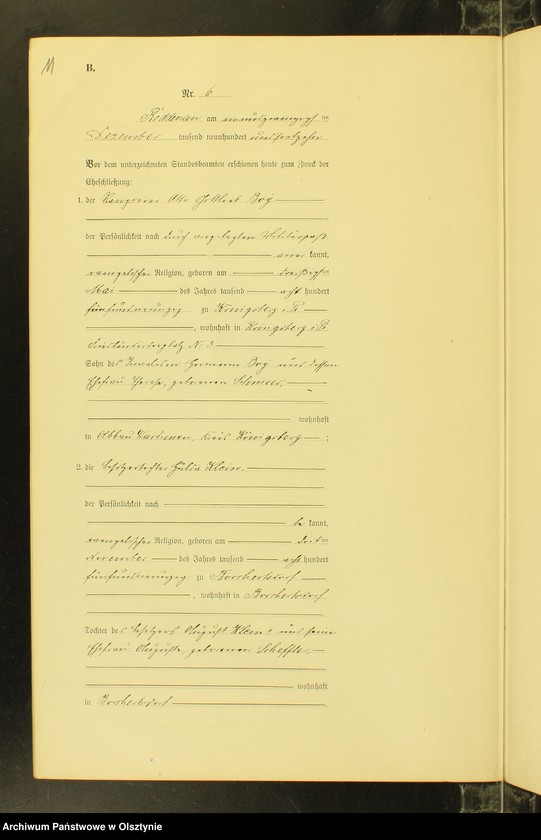 11
B.
Nr. 6
Röddenau am neunundzwanzigsten
Dezember tausend neunhundert und siebzehn
Vor dem unterzeichneten Standesbeamten erschienen heute zum Zweck der
Eheschließung:
1. der Otto Gottlieb Boy
der Persönlichkeit nach durch vorgelegten Militärpaß
aner kannt,
evangelischer Religion, geboren am dreißigsten
Mai des Jahres tausend acht hundert
fünfundneunzig zu Königsberg i. Pr.
, wohnhaft in Königsberg i. Pr.
N. 3.
Sohn des Invaliden Hermann Boy und dessen
Ehefrau Therese, geborenen
wohnhaft
in Kreis Königsberg ;
2. die Besitzertochter Klein
der Persönlichkeit nach
be kannt,
evangelischer Religion, geboren am dritten
November des Jahres tausend acht hundert
fünfundneunzig zu Borchertsdorf
, wohnhaft in Borchertsdorf
Tochter des Besitzers August Klein und seiner
Ehefrau Auguste, geborenen
wohnhaft
in Borchertsdorf
Archiwum Państwowe w Olsztynie